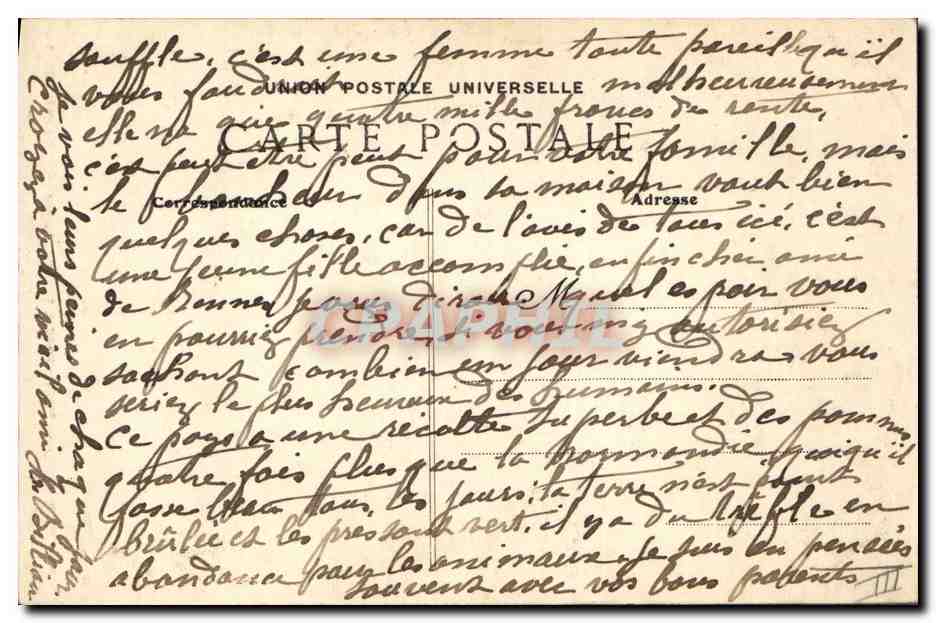 souffle, c'est une femme toute pareille qu'il
UNION POSTALE UNIVERSELLE
vous faudrait malheureusement
elle n'a que quatre mille francs de rente,
CARTE POSTALE
c'est peut être peu pour votre famille, mais
Correspondance
Adresse
le bonheur dans sa maison vaut bien
quelques choses, car de l'avis de tous ici, c'est
une jeune fille accomplie, enfin cher ami
de Rennes je vous dirais quel espoir vous
M
en pourriez prendre, si vous m'y autorisiez
CPAPHIL
sachant combien un jour viendra vous
seriez le plus heureux des humains.
ce pays a une récolte superbe et des pommes
quatre fois plus que la normandie, quoiqu'il
fasse beau tous les jours, la terre n'est point
brûlée et les prés sont vert, il y a du trèfle en
abondance pour les animaux. Je suis en pensées
souvent avec vos bons parents
III
Je vois leurs peines de chaque jour
Croyez à votre vieil ami